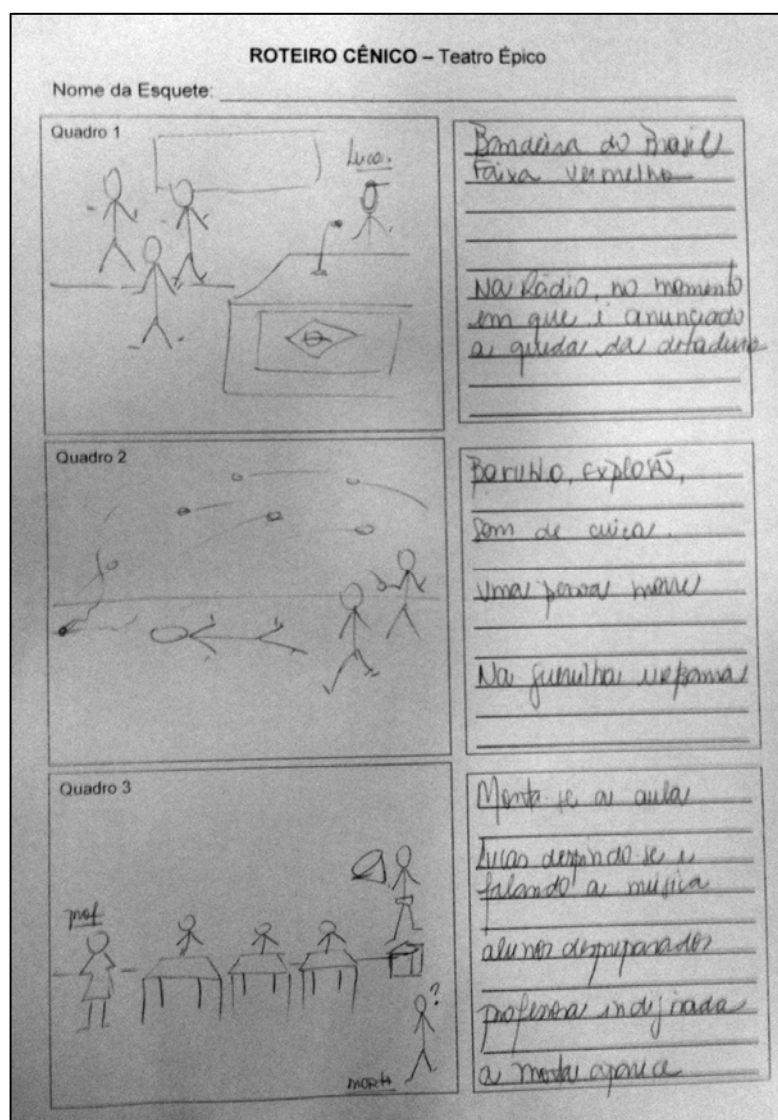 ROTEIRO CÊNICO – Teatro Épico
Nome da Esquete:
Quadro 1
Lucas.
Bandeira do Brasil
Faixa vermelha
Na Rádio, no momento
em que é anunciado
a queda da ditadura
Quadro 2
Barulho, explosão,
Som de cuica.
uma pessoa morre
Na guerrilha
Quadro 3
prof
?
morta
Monta-se a aula
Lucas despindo-se e
falando a música
alunos despreparados
professora indignada
a morta aparece